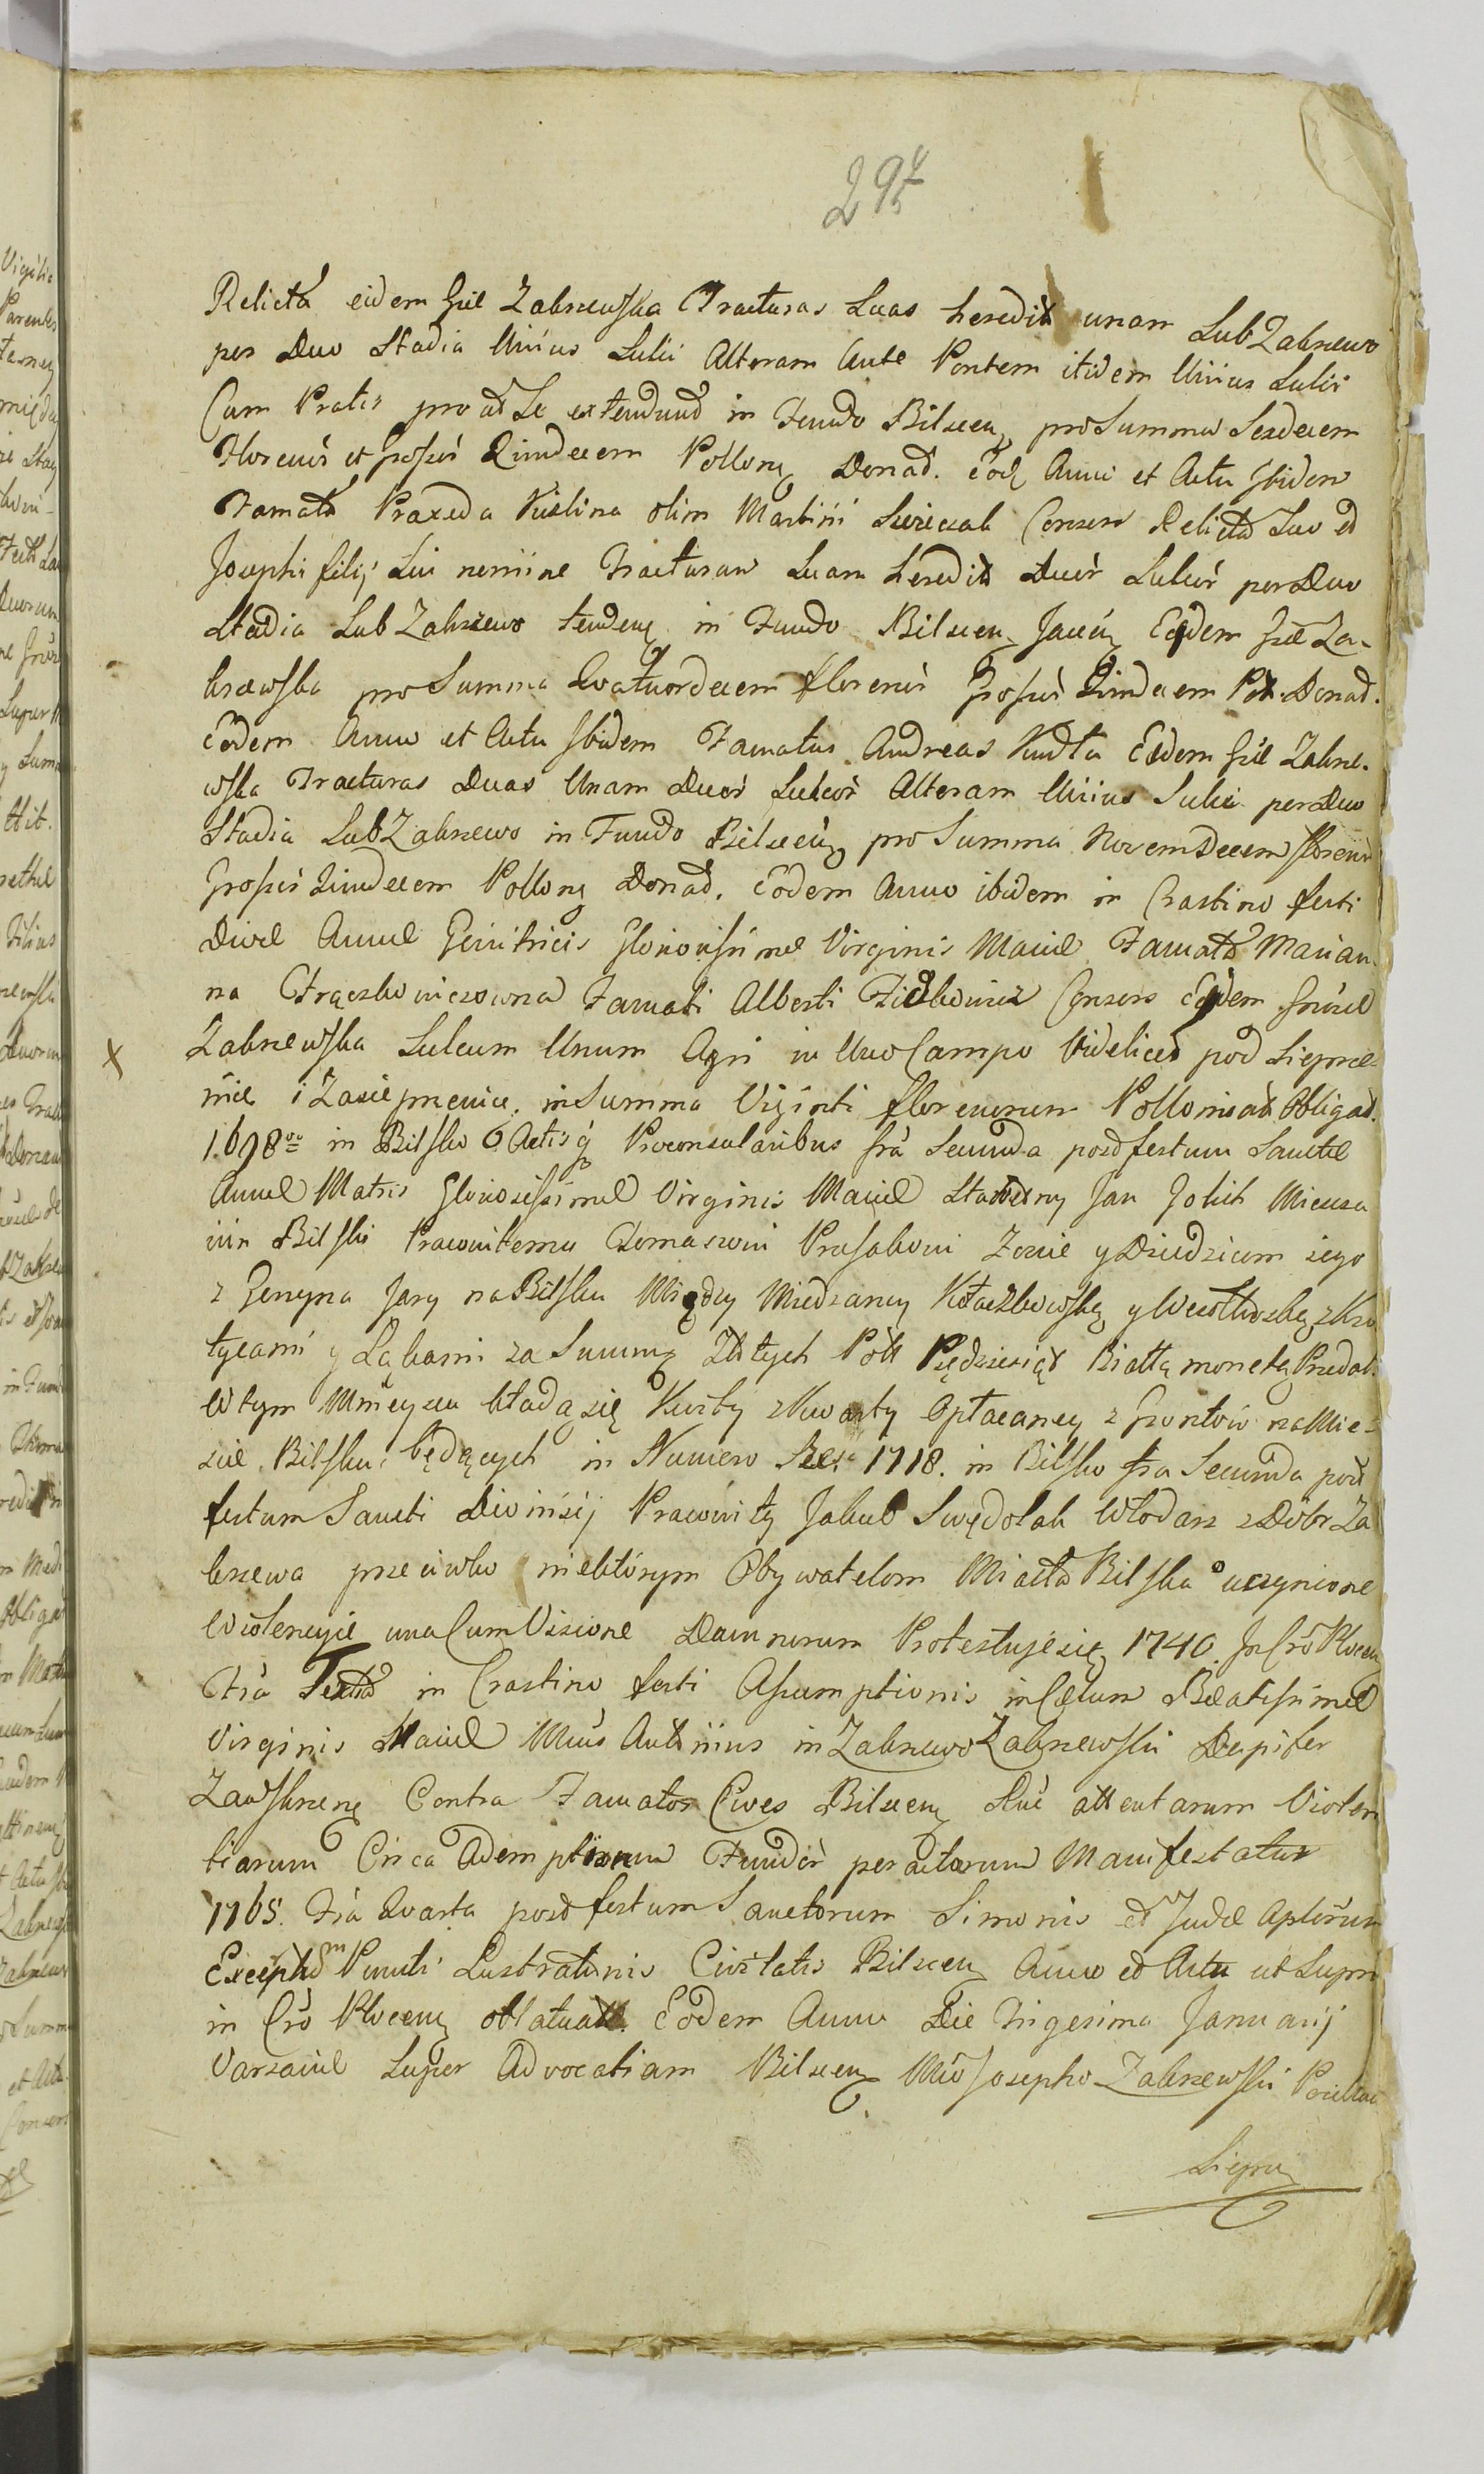 294
Relicta eidem Gñe Zakrzewska Tracturas Suas heredit unam Sub Zakrzewo
per Duo Stadia Unius Sulci Alteram Ante Pontem itidem Unius Sulci
Cum Pratis pro ut Se extendunt in Fundo Bilscen pro Summa Sexdecem
Florenis et grossis Qindecem Pollonę Donat. Eodę Anno et Actu Ibidem
Famata Praxeda Kislina olim Martini Swieczak Consors Relicta Suo et
Josephi filij Sui nomine Tracturam Suam heredit Duor Sulcor per Duo
Stadia Sub Zakrzewo tendenę in Fundo Bilscenę Jacen Eidem Gñe Za-
krzewska pro Summa Qvatuordecem florenis Grossis Qindecem Pol. Donat.
Eodem Anno et Actu Ibidem Famatus Andreas Kudła Eidem Gñe Zakrze-
wska Tracturas Duas Unam Duor Sulcor Alteram Unius Sulci per Duo
Stadia Sub Zakrzewo in Fundo Bilscenę pro Summa Novemdecem florenis
Grossis Qindecem Pollonę Donat. Eodem Anno ibidem in Crastino festi
Divæ Annæ Genitricis Gloriosissimæ Virginis Mariæ Famata Marian-
na Frączkowiczowna Famati Alberti Fiedkowicz Consors Eidem Gnosæ
X Zakrzewska Sulcum Unum Agri in Uno Campo Videlicet pod Sieprze-
nice i Zasieprzenice. in Summa Viginti florenorum Pollonicat Obligat.
1698vo in Bilsko Actis q Proconsularibus fra Secunda post festum Sanctæ
Annæ Matris Gloriosissimæ Virginis Mariæ Sławetny Jan Jolich Miesza
nin Bilski Pracowitemu Tomaszowi Prusakowi Zonie y Dziedzicom iego
z Genyna Jary na Bilsku Między Miedzany Kołaczkowską y Wesołkoską z Krza
tycami y Łąkami za Summę Złotych Poll Pędziesiąt Białłą monetą Przedał.
W tym Mmieyscu kładą się Kwity z Kwarty Opłacaney z Grontow na Mie-
scie Bilsku będących in Numero Sześ 1718. in Bilsko fra Secunda post
festum Sancti Dionisij Pracowity Jakub Swędolak Włodarz z Dobr Za
krzewa przeciwko niektórym Obywatelom Miasta Bilska o uczynione
Wiolencyie una Cum Visione Damnorum Protestuje się 1740. In Cro Plocen
Fra Tertia in Crastino festi Assumptionis in Cælum Beatissimæ
Virginis Mariæ Mñus Antonius in Zakrzewo Zakrzewski Dapifer
Zawskrzenę Contra Famatos Cives Bilscenę Rñe attentarum Violen
tiarum Circa Ademptionem Fundor peractarum Manifestatur
1765. Fra Qvarta post festum Sanctorum Simonis et Judæ Aplorum
Exceptum Puncti Lustrationis Civitatis Bilscenę Anno et Actu ut Supra
in Cro Plocenę oblatuatt. Eodem Anno Die Trigesima Januarij
Varsaviæ Super Advocatiam Bilscenę Mño Josepho Zakrzewski
Sieprę